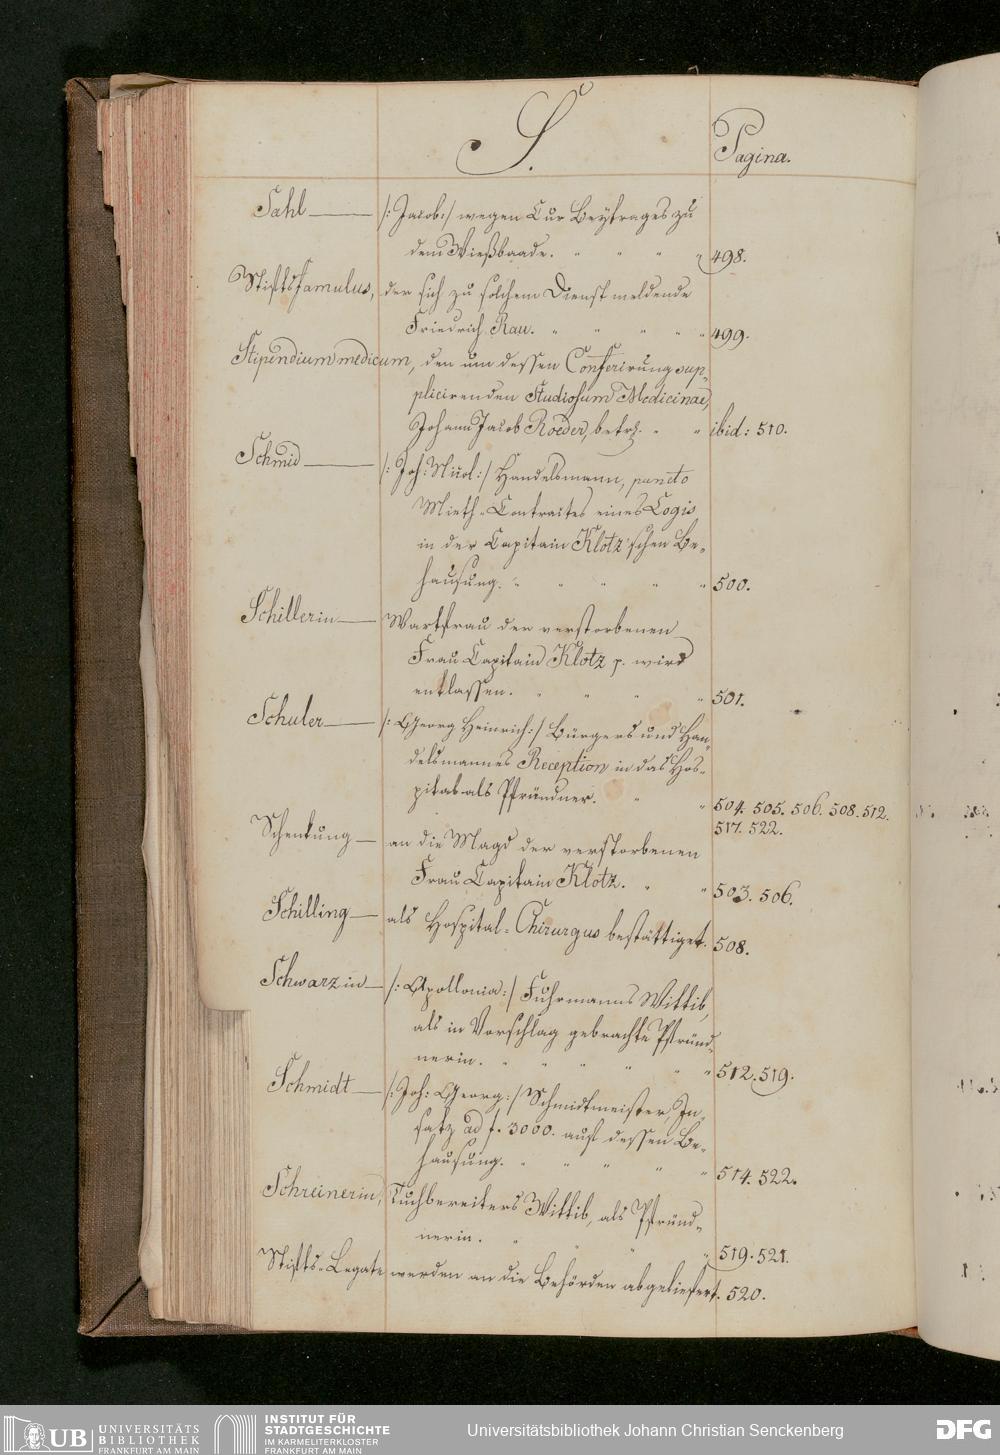 S.
Pagina.
Sahl — /: Jacob :/ wegen Cur Beytrages zu
dem Wießbaade. 498.
Stiftsfamulus, der sich zu solchem Dienst meldende
Friedrich Rau. 499.
Stipendium medicum, den um dessen Conferirung sup-
plicirenden Studiosum Medicinae,
Johann Jacob Roeder, betr. ibid: 510.
Schmid — /: Joh: Nicol: :/ Handelsmann, puncto
Mieth-Contractes eines Logis
in der Capitain Klotz'schen Be-
hausung. 500.
Schillerin — Wartfrau der verstorbenen
Frau Capitain Klotz p. wird
entlassen. 501.
Schuler — /: Georg Heinrich :/ Bürgers und Han-
delsmannes Reception in das Hos-
pital als Pfründner. 504. 505. 506. 508. 512.
517. 522.
Schenkung — an die Magd der verstorbenen
Frau Capitain Klotz. 503. 506.
Schilling — als Hospital-Chirurgus bestättiget. 508.
Schwarzin — /: Apollonia :/ Fuhrmanns Wittib,
als in Vorschlag gebrachte Pfründ-
nerin. 512. 519.
Schmidt — /: Joh: Georg :/ Schmidtmeister, In-
satz ad f. 3000. auf dessen Be-
hausung. 514. 522.
Schreinerin, Tuchbereiters Wittib, als Pfründ-
nerin. 519. 521.
Stifts-Legate werden an die Behörden abgeliefert. 520.
UB UNIVERSITÄTS
BIBLIOTHEK
FRANKFURT AM MAIN
INSTITUT FÜR
STADTGESCHICHTE
IM KARMELITERKLOSTER
FRANKFURT AM MAIN
Universitätsbibliothek Johann Christian Senckenberg
DFG